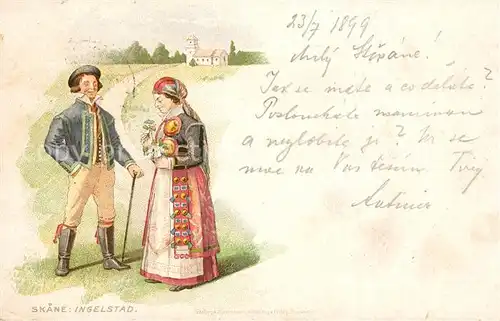 23/7 1899
Milý Štěpáne!
Jak se máte a co děláte?
Posloucháte maminku
a nezlobíte ji? Už se
moc na Vás těším. Tvůj
SKÅNE: INGELSTAD.